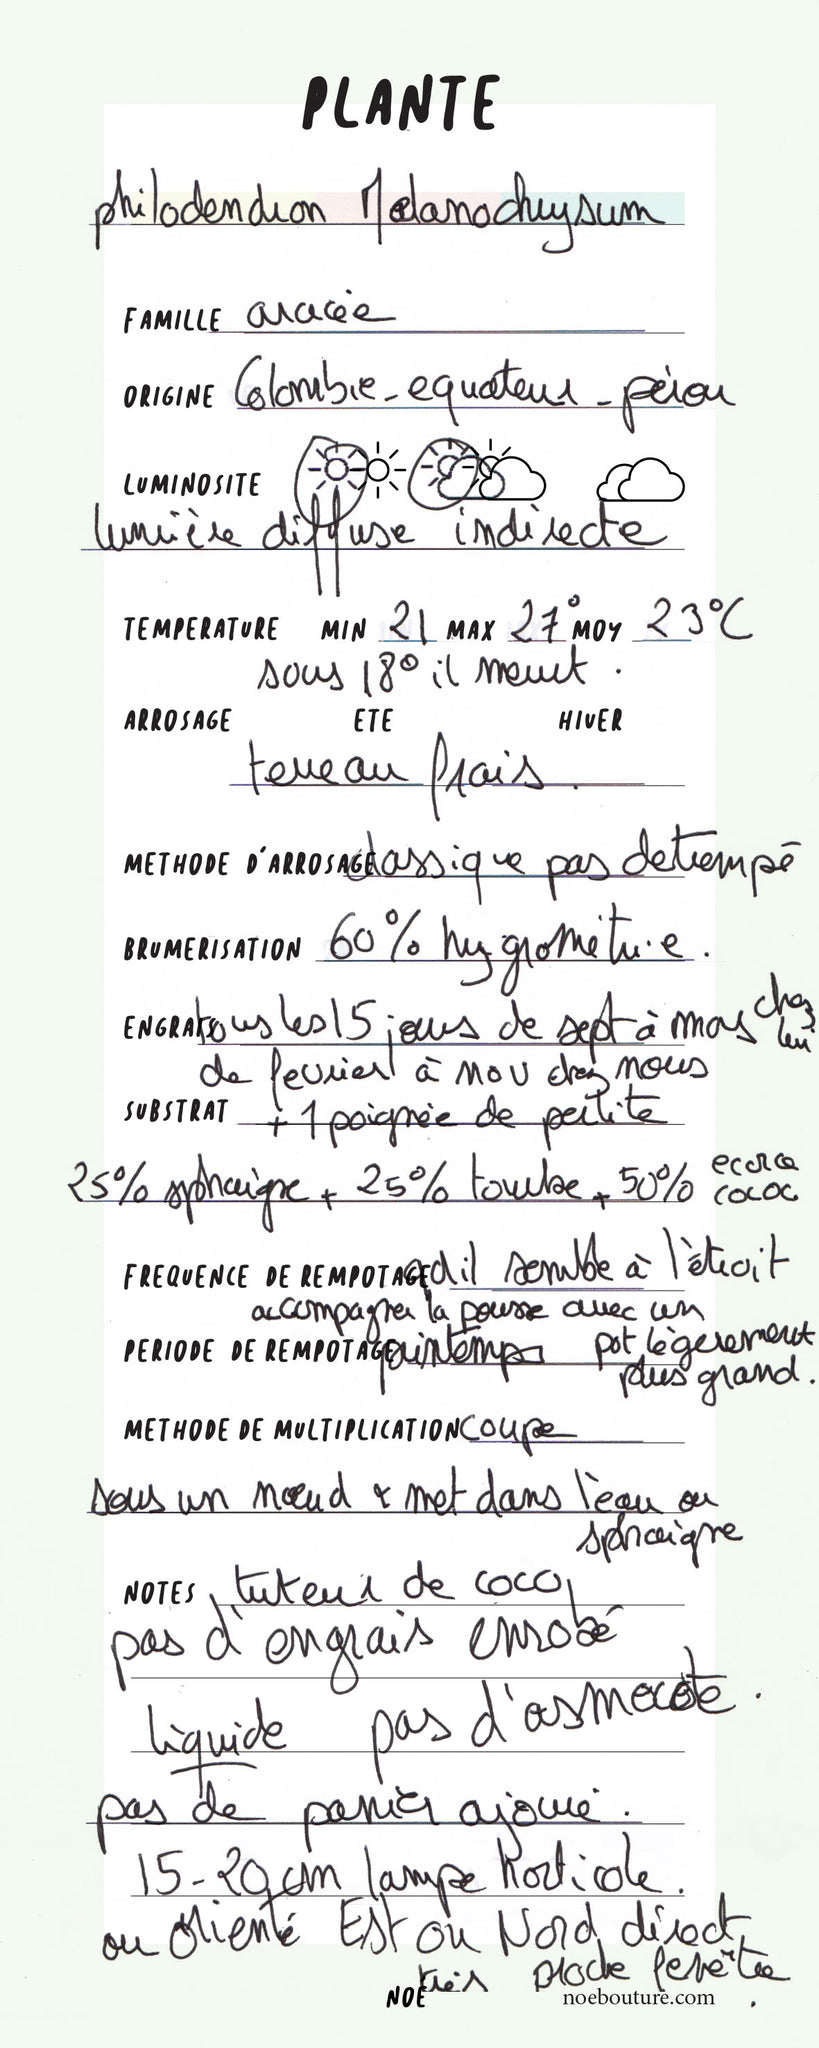 PLANTE
philodendron Melanochrysum
FAMILLE aracée
ORIGINE Colombie - equateur - pérou
LUMINOSITE
lumière diffuse indirecte
TEMPERATURE MIN 21 MAX 27° MOY 23°C
sous 18° il meurt.
ARROSAGE ETE HIVER
terreau frais.
METHODE D'ARROSAGE classique pas detrempé
BRUMERISATION 60% hygrométrie.
ENGRAIS tous les 15 jours de sept à mars chez lui
de fevrier à nov chez nous
SUBSTRAT + 1 poignée de perlite
25% sphaigne + 25% tourbe + 50% ecorce cococ
FREQUENCE DE REMPOTAGE qd il semble à l'étroit
accompagner la pousse avec un
PERIODE DE REMPOTAGE printemps pot légerement
plus grand.
METHODE DE MULTIPLICATION coupe
sous un nœud & met dans l'eau ou
sphaigne
NOTES tuteur de coco
pas d'engrais enrobé
liquide pas d'osmocote.
pas de panier ajouré.
15-20 cm lampe horticole.
ou orienté Est ou Nord direct
très proche fenêtre.
NOE noebouture.com